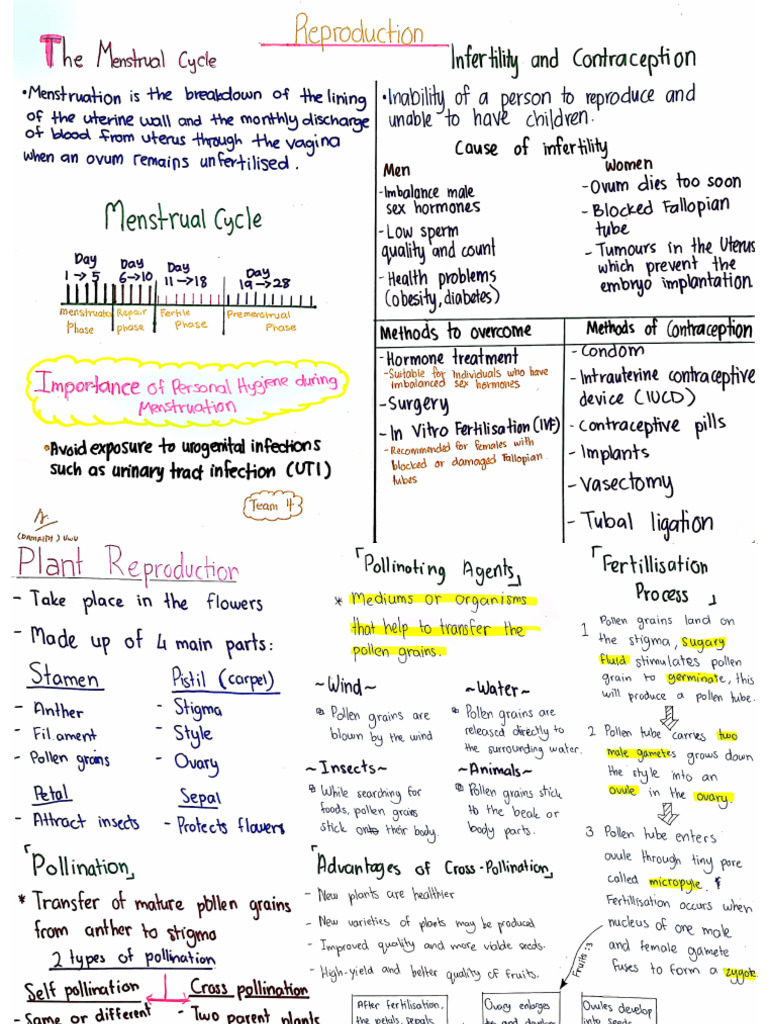 Reproduction
The Menstrual Cycle
•Menstruation is the breakdown of the lining
of the uterine wall and the monthly discharge
of blood from uterus through the vagina
when an ovum remains unfertilised.
Menstrual Cycle
Day
1→5
Day
6→10
Day
11→18
Day
19→28
Menstruato
Phase
Repair
phase
Fertile
Phase
Premenstrual
Phase
Importance of Personal Hygiene during
Menstruation
•Avoid exposure to urogenital infections
such as urinary tract infection (UTI)
Team 4
Infertility and Contraception
•Inability of a person to reproduce and
unable to have children.
Cause of infertility
Men
-Imbalance male
sex hormones
-Low sperm
quality and count
-Health problems
(obesity, diabetes)
Women
-Ovum dies too soon
-Blocked Fallopian
tube
-Tumours in the Uterus
which prevent the
embryo implantation
Methods to overcome
-Hormone treatment
-Suitable for individuals who have
imbalanced sex hormones
-Surgery
-In Vitro Fertilisation (IVF)
-Recommended for females with
blocked or damaged Fallopian
tubes
Methods of Contraception
-Condom
-Intrauterine contraceptive
device (IUCD)
-Contraceptive pills
-Implants
-Vasectomy
-Tubal ligation
Plant Reproduction
- Take place in the flowers
- Made up of 4 main parts:
Stamen
- Anther
- Filament
- Pollen grains
Pistil (carpel)
- Stigma
- Style
- Ovary
Petal
- Attract insects
Sepal
- Protects flowers
「Pollination」
* Transfer of mature pollen grains
from anther to stigma
2 types of pollination
Self pollination
- Same or different
Cross pollination
- Two parent plants
「Pollinating Agents」
* Mediums or organisms
that help to transfer the
pollen grains.
~Wind~
Pollen grains are
blown by the wind
~Water~
Pollen grains are
released directly to
the surrounding water.
~Insects~
While searching for
foods, pollen grains
stick onto their body.
~Animals~
Pollen grains stick
to the beak or
body parts.
「Advantages of Cross-Pollination」
- New plants are healthier
- New varieties of plants may be produced
- Improved quality and more viable seeds.
- High-yield and better quality of fruits.
「Fertillisation
Process」
1 Pollen grains land on
the stigma, sugary
fluid stimulates pollen
grain to germinate, this
will produce a pollen tube.
2 Pollen tube carries two
male gametes grows down
the style into an
ovule in the ovary.
3 Pollen tube enters
ovule through tiny pore
called micropyle.
Fertilisation occurs when
nucleus of one male
and female gamete
fuses to form a zygote.
Fruits :3
After fertilisation,
the petals, sepals
Ovary enlarges
Ovules develop
into seeds